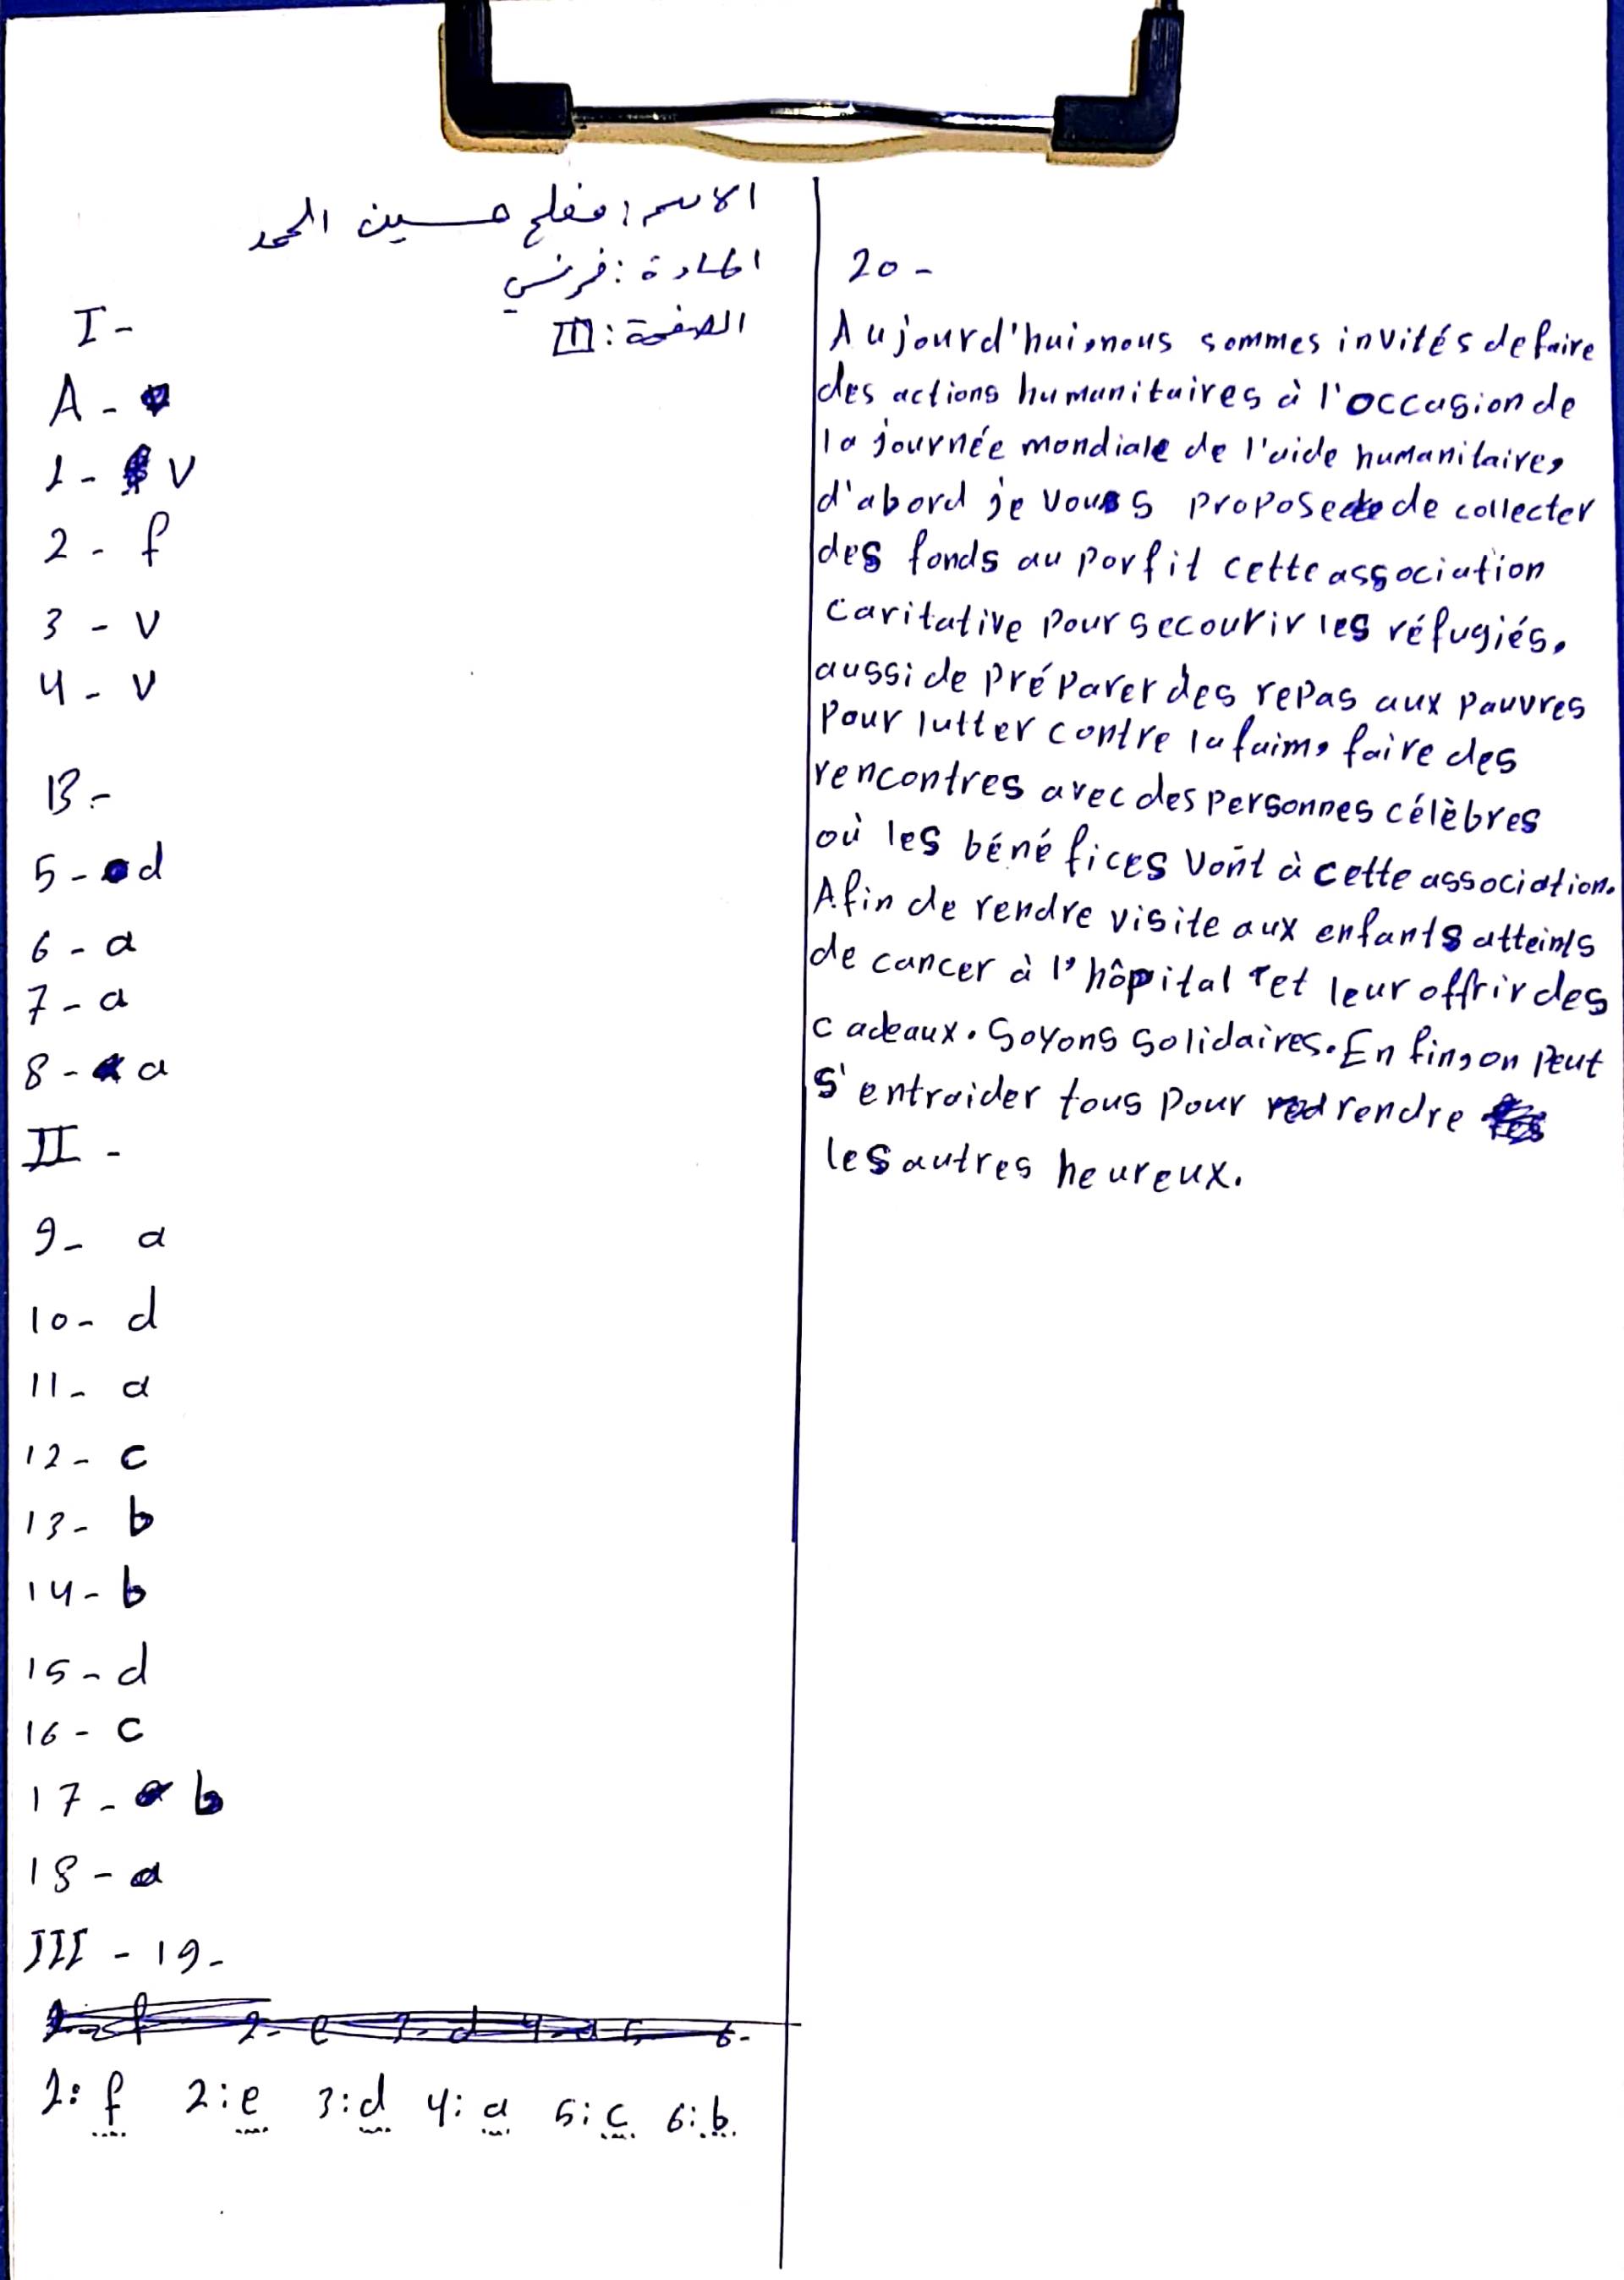 الاسم: مفلح حسين المحمد
المادة: فرنسي
الصفحة: III
I-
A-
1- v
2- f
3- v
4- v
B-
5- d
6- a
7- a
8- a
II-
9- a
10- d
11- a
12- c
13- b
14- b
15- d
16- c
17- b
18- a
III - 19-
2- e 3- d 4- a 5- 6-
1: f 2: e 3: d 4: a 5: c 6: b
20-
Aujourd'hui, nous sommes invités de faire
des actions humanitaires à l'occasion de
la journée mondiale de l'aide humanitaire,
d'abord je vous propose de collecter
des fonds au porfit cette association
caritative pour secourir les réfugiés.
aussi de préparer des repas aux pauvres
pour lutter contre la faim, faire des
rencontres avec des personnes célèbres
où les bénéfices vont à cette association.
Afin de rendre visite aux enfants atteints
de cancer à l'hôpital et leur offrir des
cadeaux. Soyons solidaires. En fin, on peut
s'entraider tous pour rendre
les autres heureux.